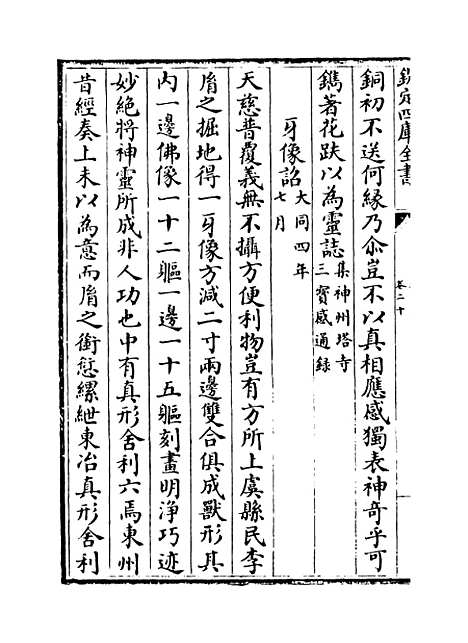 欽定四庫全書
卷二十
銅初不送何緣乃尒豈不以真相應感獨表神奇乎可
鐫著花趺以為靈誌集神州塔寺三寳感通録
牙像詔大同四年七月
天慈普覆義無不攝方便利物豈有方所上虞縣民李
胤之掘地得一牙像方減二寸兩邊雙合俱成獸形其
内一邊佛像一十二軀一邊一十五軀刻畫明淨巧迹
妙絶將神靈所成非人功也中有真形舍利六焉東州
昔經奏上未以為意而胤之銜愆縲紲東冶真形舍利